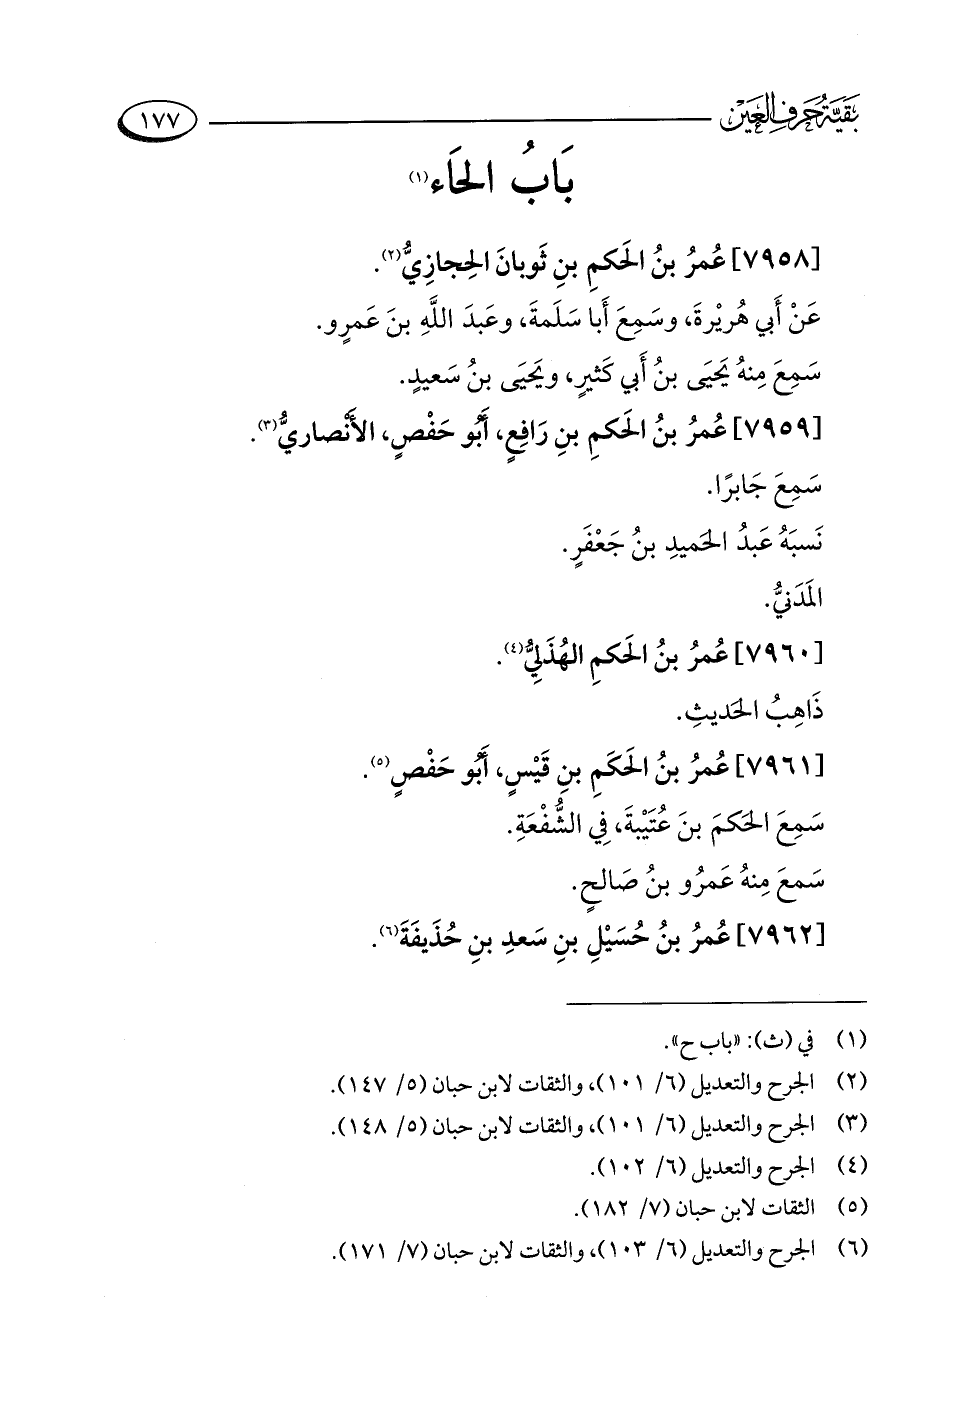 بَقِيَّة حَرف العَين
١٧٧
بَابُ الحَاء(١)
[٧٩٥٨] عُمرُ بنُ الحَكمِ بنِ ثَوبانَ الحِجازِيُّ(٢).
عَنْ أَبي هُريْرةَ، وسَمِعَ أَبا سَلَمةَ، وعَبدَ اللَّهِ بنَ عَمرٍو.
سَمِعَ مِنهُ يَحيَى بنُ أَبي كَثيرٍ، ويَحيَى بنُ سَعيدٍ.
[٧٩٥٩] عُمرُ بنُ الحَكمِ بنِ رَافِعٍ، أَبُو حَفْصٍ، الأَنْصاريُّ(٣).
سَمِعَ جَابرًا.
نَسبَهُ عَبدُ الحَميدِ بنُ جَعْفَرٍ.
المَدَنيُّ.
[٧٩٦٠] عُمرُ بنُ الحَكمِ الهُذَلِيُّ(٤).
ذَاهِبُ الحَديثِ.
[٧٩٦١] عُمرُ بنُ الحَكَمِ بنِ قَيْسٍ، أَبُو حَفْصٍ(٥).
سَمِعَ الحَكمَ بنَ عُتَيْبةَ، فِي الشُّفْعَةِ.
سَمعَ مِنهُ عَمرُو بنُ صَالحٍ.
[٧٩٦٢] عُمرُ بنُ حُسَيْلِ بنِ سَعدِ بنِ حُذَيفَةَ(٦).
(١) في (ث): «باب ح».
(٢) الجرح والتعديل (٦/ ١٠١)، والثقات لابن حبان (٥/ ١٤٧).
(٣) الجرح والتعديل (٦/ ١٠١)، والثقات لابن حبان (٥/ ١٤٨).
(٤) الجرح والتعديل (٦/ ١٠٢).
(٥) الثقات لابن حبان (٧/ ١٨٢).
(٦) الجرح والتعديل (٦/ ١٠٣)، والثقات لابن حبان (٧/ ١٧١).